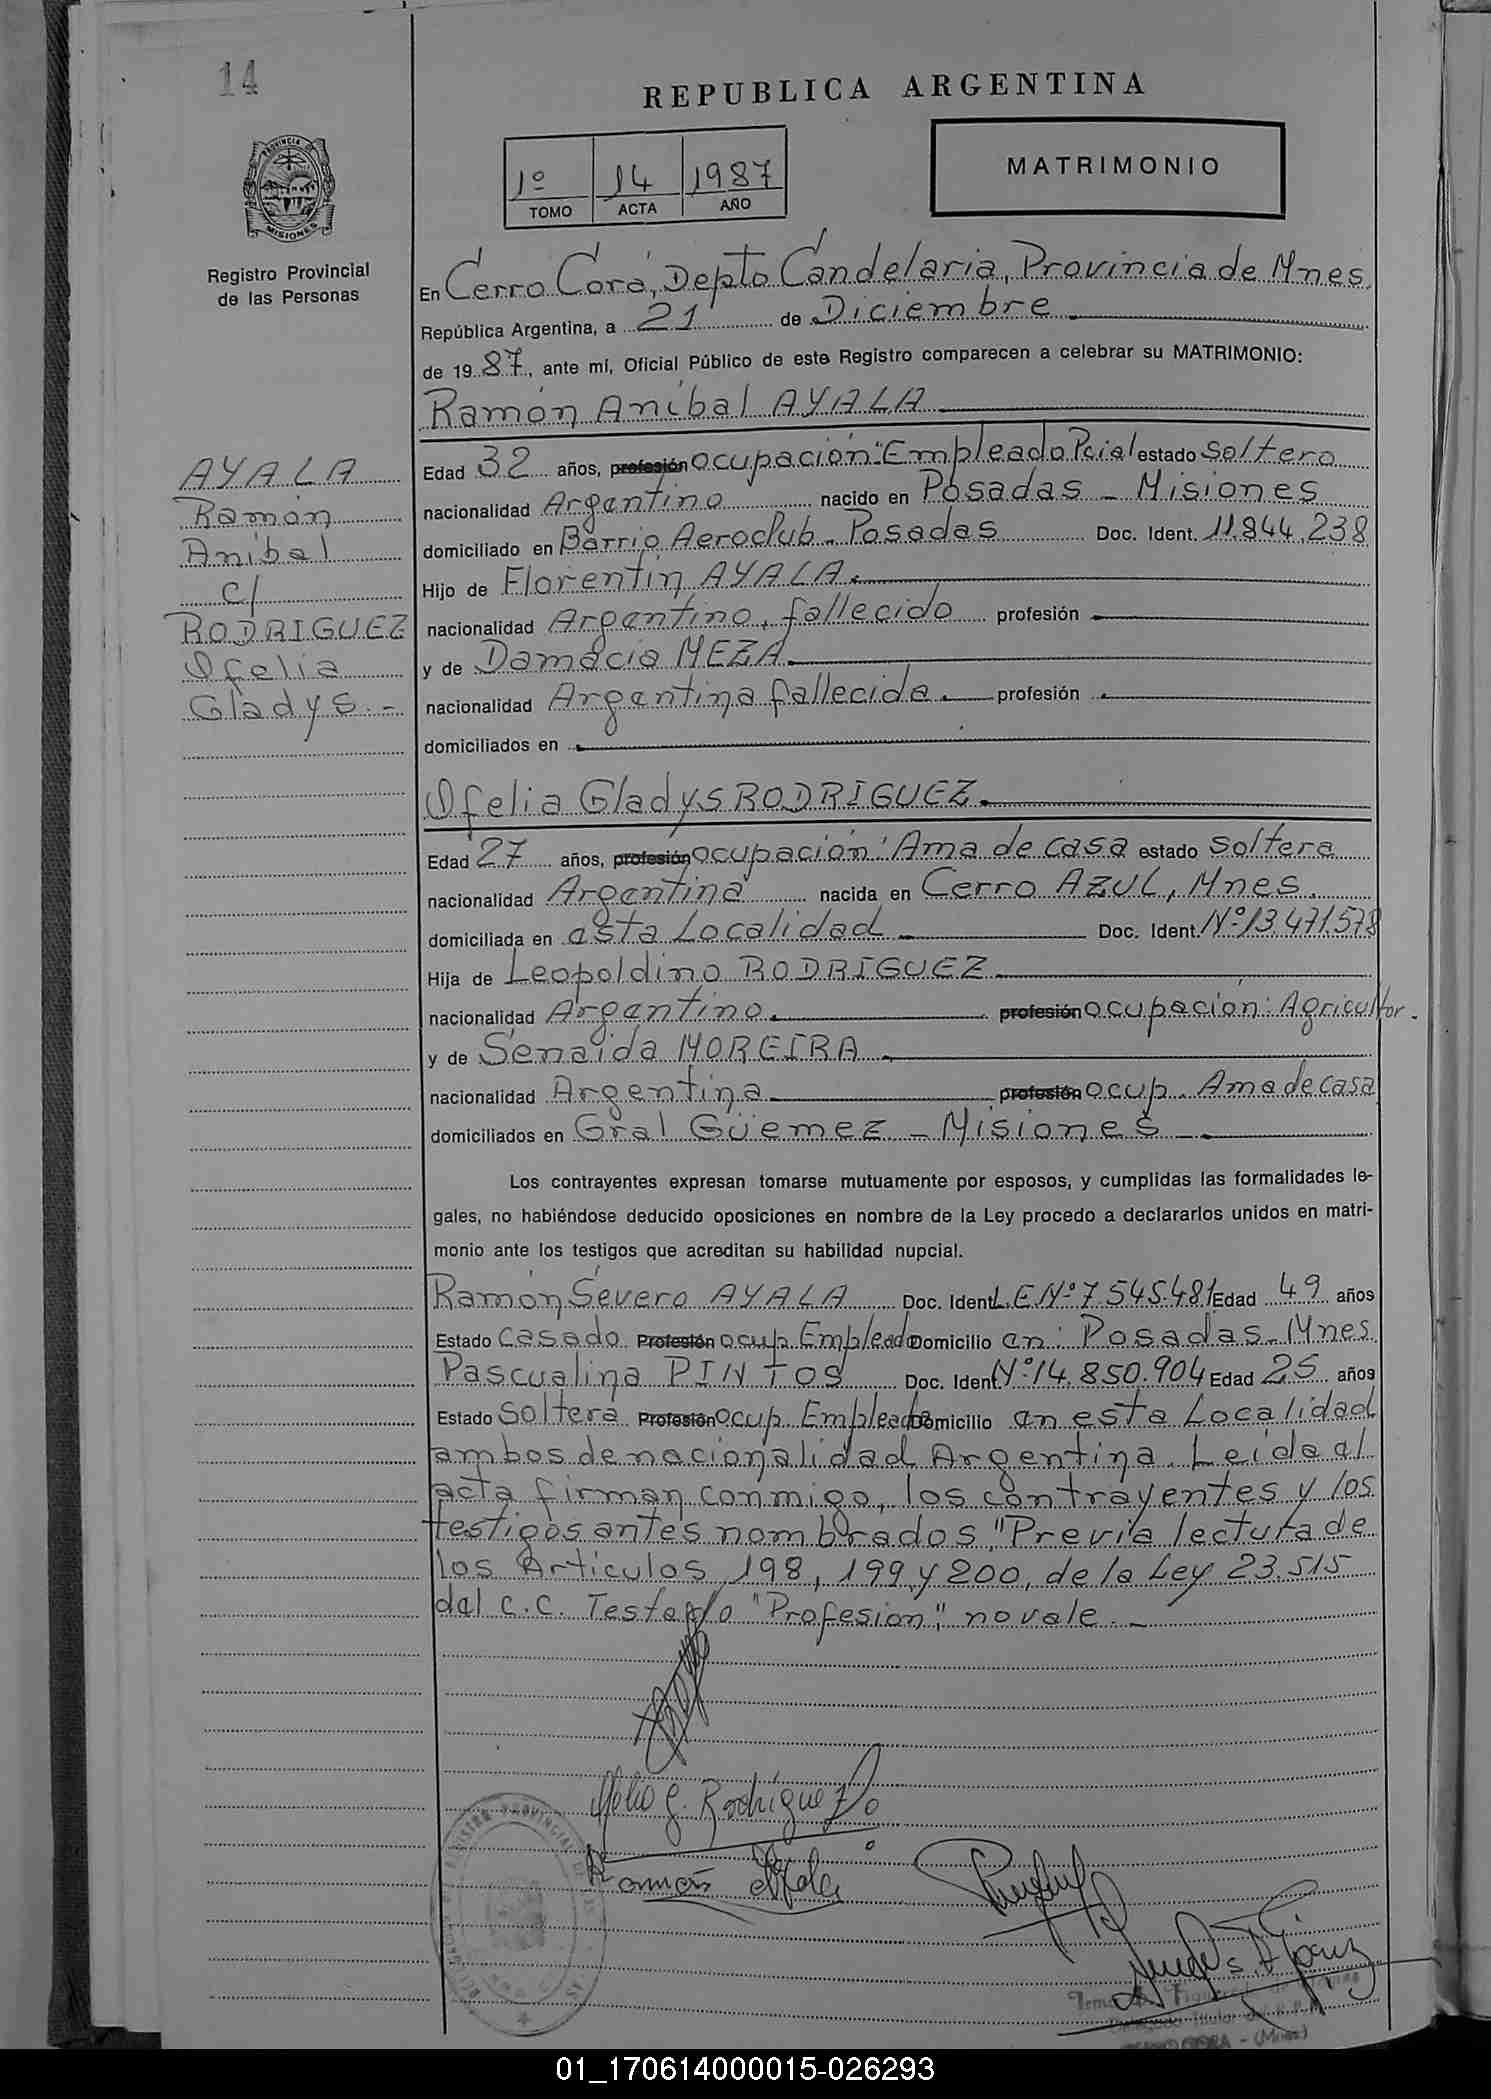 14
REPUBLICA ARGENTINA
PROVINCIA DE
MISIONES
1º 14 1987
TOMO ACTA AÑO
MATRIMONIO
Registro Provincial
de las Personas
En Cerro Corá, Depto Candelaria, Provincia de Mnes
República Argentina, a 21 de Diciembre
de 1987, ante mí, Oficial Público de este Registro comparecen a celebrar su MATRIMONIO:
Ramón Aníbal AYALA
AYALA
Ramón
Anibal
c/
RODRIGUEZ
Ofelia
Gladys.-
Edad 32 años, profesión ocupación: Empleado Pcial estado soltero
nacionalidad Argentino nacido en Posadas - Misiones
domiciliado en Barrio Aeroclub - Posadas Doc. Ident. 11.844.238
Hijo de Florentín AYALA.
nacionalidad Argentino, fallecido profesión
y de Damacia MEZA
nacionalidad Argentina fallecida. profesión
domiciliados en
Ofelia Gladys RODRIGUEZ.
Edad 27 años, profesión ocupación: Ama de casa estado soltera
nacionalidad Argentina nacida en Cerro AZUL, Mnes.
domiciliada en esta Localidad Doc. Ident. Nº 13.471.578
Hija de Leopoldino RODRIGUEZ
nacionalidad Argentino. profesión ocupación: Agricultor.
y de Senaida MOREIRA
nacionalidad Argentina profesión ocup. Ama de casa
domiciliados en Gral Güemez - Misiones
Los contrayentes expresan tomarse mutuamente por esposos, y cumplidas las formalidades le-
gales, no habiéndose deducido oposiciones en nombre de la Ley procedo a declararlos unidos en matri-
monio ante los testigos que acreditan su habilidad nupcial.
Ramón Severo AYALA Doc. Ident. L.E Nº 7.545.481 Edad 49 años
Estado casado Profesión ocup. Empleado Domicilio en: Posadas - Mnes
Pascualina PINTOS Doc. Ident. Nº 14.850.904 Edad 25 años
Estado soltera Profesión ocup. Empleada Domicilio en esta Localidad
ambos de nacionalidad Argentina. Leida el
acta firman conmigo, los contrayentes y los
testigos antes nombrados, "Previa lectura de
los Articulos 198, 199 y 200, de la Ley 23.515
del C.C. Testado "Profesion", no vale.-
G. Rodríguez
Ramón Ayala
REGISTRO PROVINCIAL DE
- (Mnes)
01_170614000015-026293